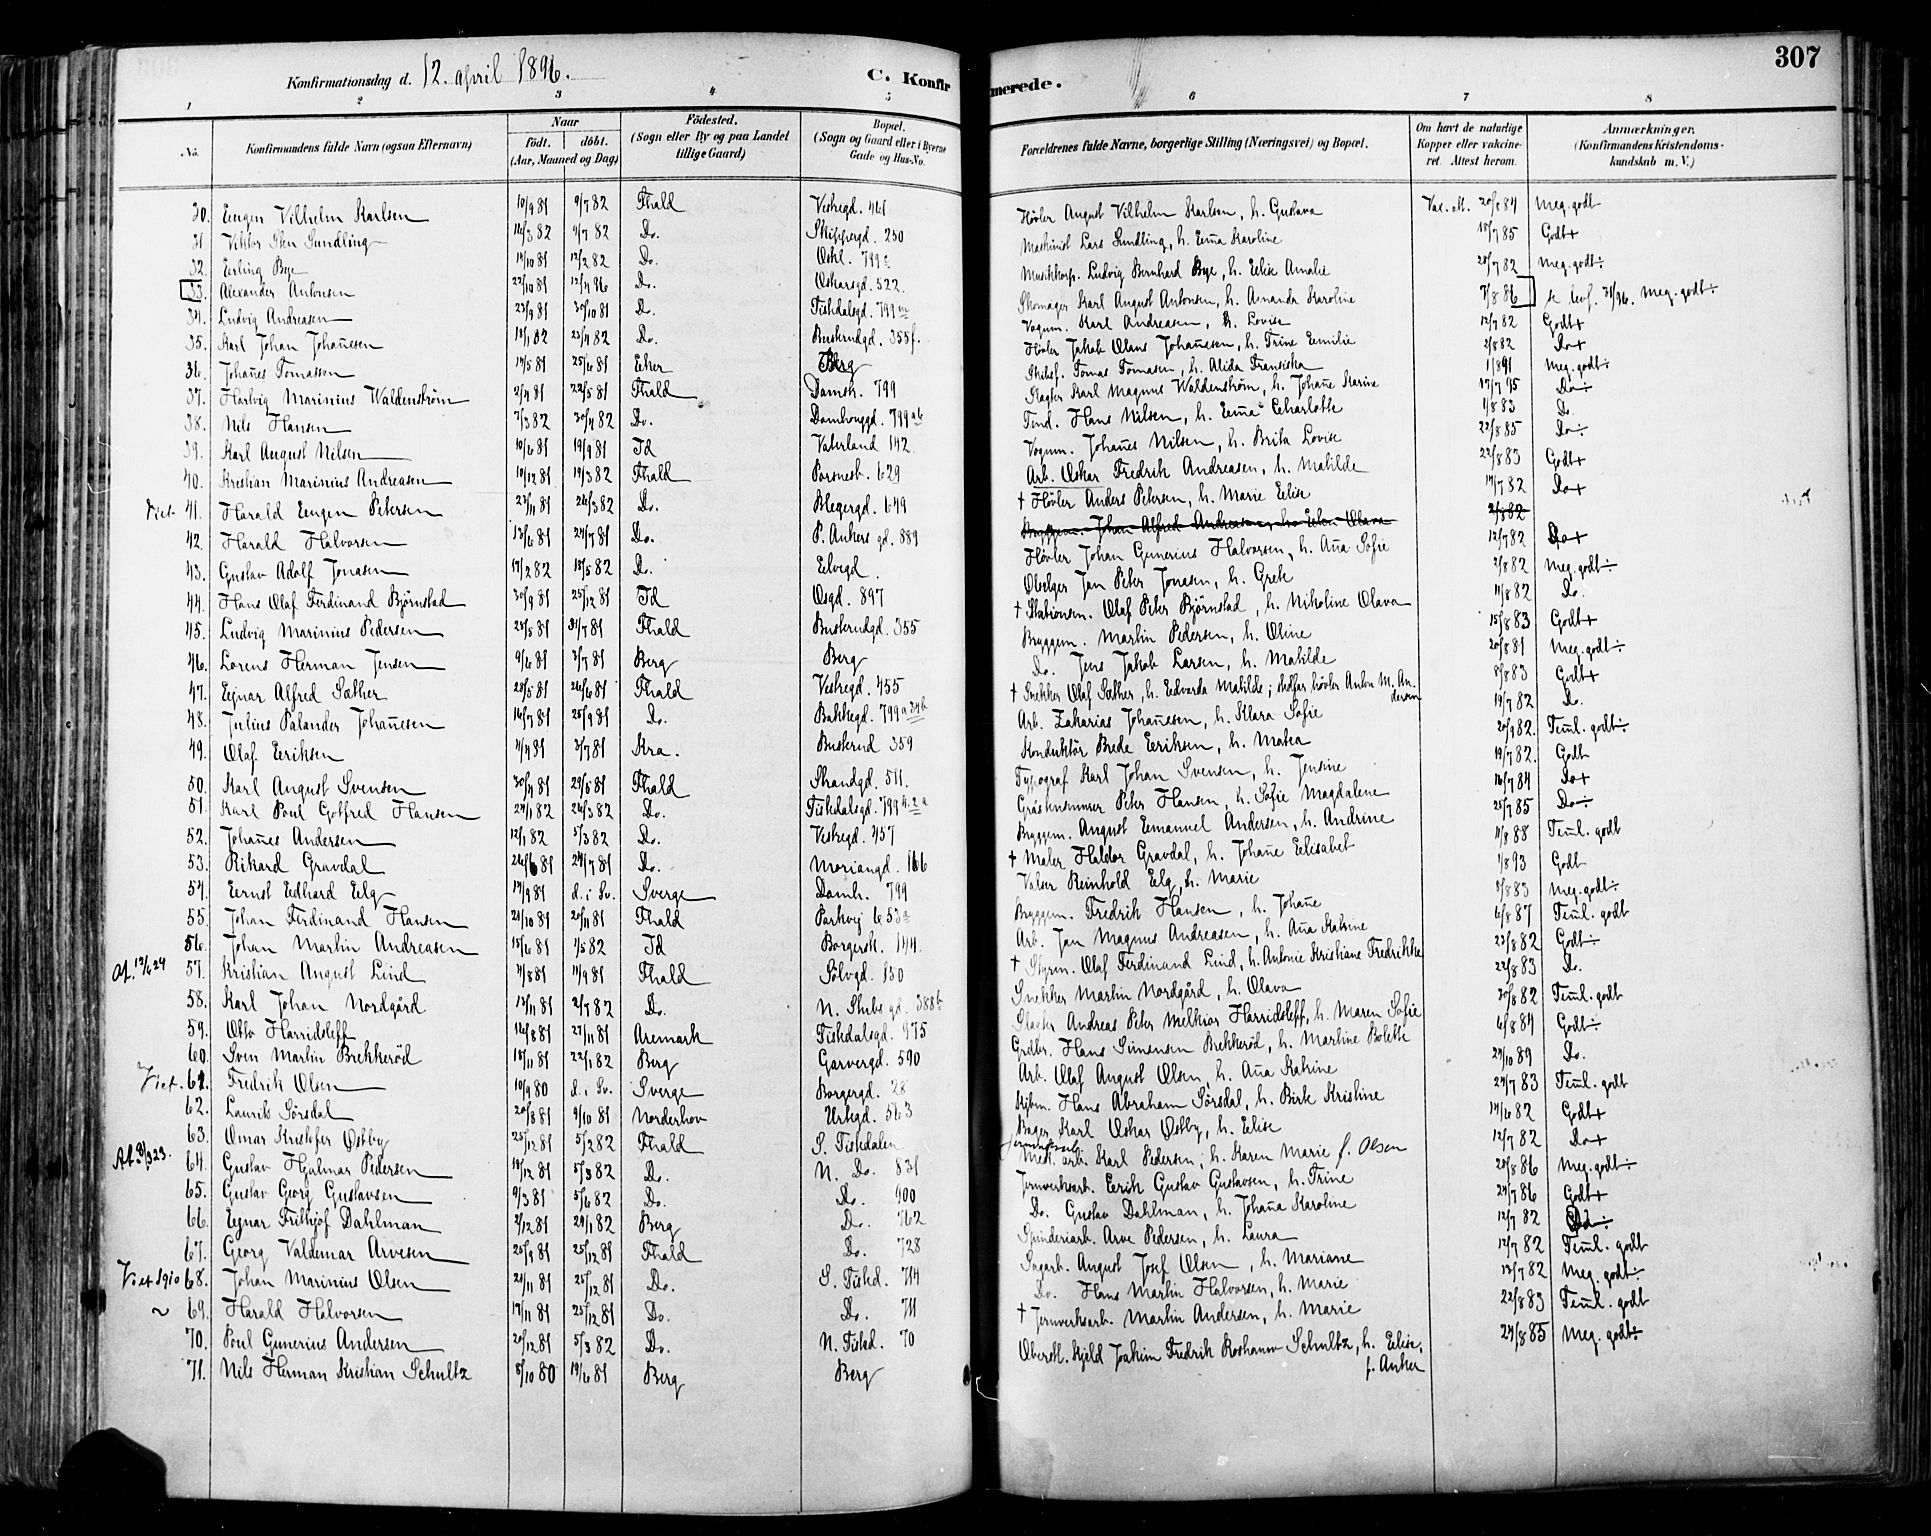 307
Konfirmationsdag d. 12. april 1896.
C. Konfirmerede.
1 2 3 4 5 6 7 8
No.
Konfirmandens fulde Navn (ogsaa Efternavn)
Naar
født. døbt.
(Aar, Maaned og Dag)
Fødested.
(Sogn eller By og paa Landet tillige Gaard)
Bopæl.
(Sogn og Gaard eller i Byerne Gade og Hus-No.
Forældrenes fulde Navne, borgerlige Stilling (Næringsvei) og Bopæl.
Om havt de naturlige Kopper eller vakcineret. Attest herom.
Anmærkninger.
(Konfirmandens Kristendomskundskab m. V.)
30. Eugen Vilhelm Karlsen 10/9 81 9/7 82 Fhald Vestregd. 461 Høvler August Vilhelm Karlsen, h. Gustava Vac. att. 20/8 84 Meg. godt
31. Viktor Sundling 14/3 82 9/7 82 Do. Skippergd. 250 Maskinist Lars Sundling, h. Em̄a Karoline 18/7 85 Godt+
32. Erling Bye 14/10 81 12/2 82 Do. 799 Musikkorp. Ludvig Bernhard Bye, h. Elise Amalie 28/7 82 Meg. godt÷
33. Alexander Antonsen 22/10 81 Do. Oskarsgd. 522 Skomager Karl August Antonsen, h. Amanda Karoline 7/8 86 Meg. godt÷
34. Ludvig Andreasen 23/9 81 30/10 81 Do. Fiskdalsgd. 799 Vognm. Karl Andreasen, h. Lovise 12/7 82 Godt+
35. Karl Johan Johan̄esen 18/1 82 23/4 82 Do. Buskrudgd. 355f. Høvler Jakob Olaus Johan̄esen, h. Trine Emilie 2/8 82 Do+
36. Johan̄es Tomassen 14/5 81 25/6 81 Eker Berg Skibsf. Tomas Tomasen, h. Alida Fransiska 1/8 91 Meg. godt÷
37. Hartvig Marinius Waldenstrøm 2/4 81 22/5 81 Fhald Damst. 799 Slagter Karl Magnus Waldenstrøm, h. Johan̄e Karine 17/7 95 Do÷
38. Nils Hansen 7/3 82 30/4 82 Do. Damhauggd. 799ab Tind. Hans Nilsen, h. Em̄a Charlotte 1/8 83 Do
39. Karl August Nilsen 10/6 81 19/9 81 Id Vaterland 142 Vognm. Johan̄es Nilsen, h. Brita Lovise 22/8 85 Do÷
40. Kristian Marinius Andreasen 10/12 81 19/3 82 Fhald Porsnest. 629 Arb. Oskar Fredrik Andreasen, h. Matilde 22/8 83 Godt+
Viet. 41. Harald Eugen Petersen 23/11 81 26/3 82 Do. Blegergd. 649 † Høvler Anders Petersen, h. Marie Elise 14/7 82 Do+
Byggem. Johan Alfred Andreasen, h. Olava 2/8 82
42. Harald Halvorsen 13/6 81 24/7 81 Do. P. Ankers gd. 889 Høvler Johan Gunerius Halvorsen, h. An̄a Sofie 12/7 82 Do+
43. Gustav Adolf Jonasen 17/2 82 18/5 82 Do. Elvegd. Ølselger Jan Peter Jonasen, h. Grete 2/8 82 Meg. godt÷
44. Hans Olaf Ferdinand Bjørnstad 30/9 81 25/12 81 Id Osgd. 897 † Stationsm. Olaf Peter Bjørnstad, h. Nikoline Olava 11/8 82 Do.
45. Ludvig Marinius Pedersen 28/5 81 31/7 81 Fhald Buskrudgd. 355 Byggem. Martin Pedersen, h. Oline 15/8 83 Godt+
46. Lorens Herman Jensen 9/6 81 3/7 81 Berg Berg Do. Jens Jakob Larsen, h. Matilde 20/8 81 Meg. godt÷
47. Ejnar Alfred Sæther 28/5 81 26/6 81 Fhald Vestregd. 455 † Snekker Olaf Sæther, h. Edvarda Matilde; stedfar høvler Anton M. Andersen 8/8 83 Godt+
48. Julius Palander Johan̄esen 16/7 81 25/9 81 Do. Bakkegd. 799 a 34b Arb. Zakarias Johan̄esen, h. Klara Sofie 19/7 82 Do.
49. Olaf Eriksen 4/4 81 3/7 81 Kra. Buskrud 359 Konduktør Brede Eriksen, h. Matea 20/9 82. Tem̄l. godt÷
50. Karl August Svensen 30/4 81 29/5 81 Fhald Strandgd. 511. Typograf Karl Johan Svensen, h. Jensine 19/7 82. Godt
51. Karl Poul Gotfred Hansen 24/1 82 26/3 82 Do. Fiskdalsgd. 799 Gråstensmurer Peter Hansen, h. Sofie Magdalene 16/7 84 Do+
52. Johan̄es Andersen 12/1 82 5/3 82 Do. Vestregd. 457 Byggem. August Emanuel Andersen, h. Andrine 25/7 85 Do÷
53. Rikard Gravdal 26/6 81 24/7 81 Do. Moriangd. 166 † Maler Haldor Gravdal, h. Johan̄e Elisabet 11/8 88 Tem̄l. godt
54. Ernst Edhard Elg 17/9 81 d. i Sv. Sverge Damh. 799 Valser Reinhold Elg, h. Marie 1/8 93 Godt
55. Johan Ferdinand Hansen 21/10 81 20/11 81 Fhald Parkvej 653a Byggem. Fredrik Hansen, h. Johan̄e 8/8 83 Meg. godt÷
56. Johan Martin Andreasen 15/6 81 1/5 82 Id Borgerst. 144. Arb. Jan Magnus Andreasen, h. An̄a Katrine 6/8 87 Tem̄l. godt
Af. 12/6 24 57. Kristian August Lind 7/8 81 11/9 81 Fhald Sølvgd. 150 † Styrm. Olaf Ferdinand Lind, h. Antonie Kristiane Fredrikke 23/8 82 Godt÷
58. Karl Johan Nordgård 13/11 81 2/7 82 Do. N. Stubs gd. 388b Snekker Martin Nordgård, h. Olava 22/8 83 Do.
59. Otto Harridsleff 16/8 81 27/11 81 Aremark Fiskdalsgd. 975 Slagter Andreas Peter Melkior Harridsleff, h. Maren Sofie 30/8 82 Tem̄l. godt
60. Sven Martin Brekkerød 18/11 81 22/1 82 Berg Garvergd. 590 Grdbr. Hans Simensen Brekkerød, h. Martine Bolette 6/8 84 Godt÷
Viet. 61. Fredrik Olsen 10/9 80 d. i Sv. Sverge Borgergd. 28 Arb. Olaf August Olsen, h. An̄a Katrine 29/10 89 Do.
62. Laurits Sørsdal 20/8 81 9/10 81 Norderhov Urtegd. 563 Kjbm. Hans Abraham Sørsdal, h. Birte Kristine 24/7 83 Tem̄l. godt
63. Omar Kristofer Østby 25/12 81 5/2 82 Fhald S. Fiskdalen Bager Karl Oskar Østby, h. Elise 14/6 82 Godt+
Af. 3/3 23. 64. Gustav Hjalmar Pedersen 18/12 81 5/3 82 Do. N. Do. 831 Mek. arb. Karl Pedersen, h. Karen Marie f. Olsen 12/7 82 Do+
65. Gustav Georg Gustavsen 9/3 81 5/6 82 Do. Do. 900 Jernverksarb. Erik Gustav Gustavsen, h. Trine 20/8 86 Meg. godt÷
66. Ejnar Fritjof Dahlman 2/12 81 29/1 82 Berg Do. 762 Do. Gustav Dahlman, h. Johan̄a Karoline 24/7 86 Godt+
67. Georg Valdemar Arvesen 20/9 81 25/12 81 Fhald Do. 728 Spinderiarb. Arve Pedersen, h. Laura 12/7 82 Do÷
Viet 1910 68. Johan Marinius Olsen 21/11 81 25/12 81 Do. S. Fiskd. 714 Sagarb. August Josef Olsen, h. Mariane 12/7 82 Tem̄l. godt
~ 69. Harald Halvorsen 17/11 81 25/12 81 Do. Do. 711 Do. Hans Martin Halvorsen, h. Marie 13/7 82 Meg. godt÷
70. Poul Gunerius Andersen 20/12 81 5/3 82 Do. N. Fiskd. 70 † Jernverksarb. Martin Andersen, h. Marie 22/8 83 Tem̄l. godt
71. Nils Herman Kristian Schultz 8/10 80 19/6 81 Berg Berg Oberstl. Kjeld Joakim Fredrik Schultz, h. Elise, f. Anker 24/8 85 Meg. godt÷